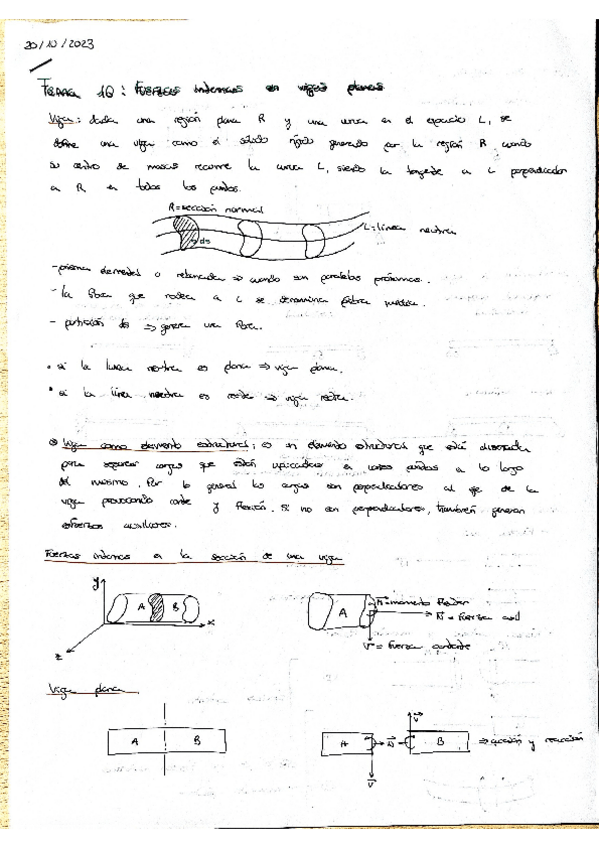 20/10/2023
Tema 10: Fuerzas internas en vigas planas
Viga: dada una región plana R y una curva en el espacio L, se
define una viga como el sólido rígido generado por la región R cuando
su centro de masas recorre la curva L, siendo la tangente a L perpendicular
a R en todos los puntos.
R=sección normal
L=línea neutra
ds
- prisma elemental o rebanada => cuando son paralelas próximas.
- la fibra que rodea a L se denomina fibra
- partición ds => genera una fibra.
• si la línea neutra es plana => viga plana.
• si la línea neutra es recta => viga recta.
Viga como elemento estructural: es un elemento estructural que está diseñada
para soportar cargas que están aplicadas en varios puntos a lo largo
del mismo. Por lo general las cargas son perpendiculares al eje de la
viga provocando corte y flexión. Si no son perpendiculares, también generan
esfuerzos axiales.
Fuerzas internas en la sección de una viga
y
A B
x
z
A
M=momento flector
N = Fuerza axil
V = Fuerza cortante
Viga plana
A B
A N B => acción y reacción
V
V